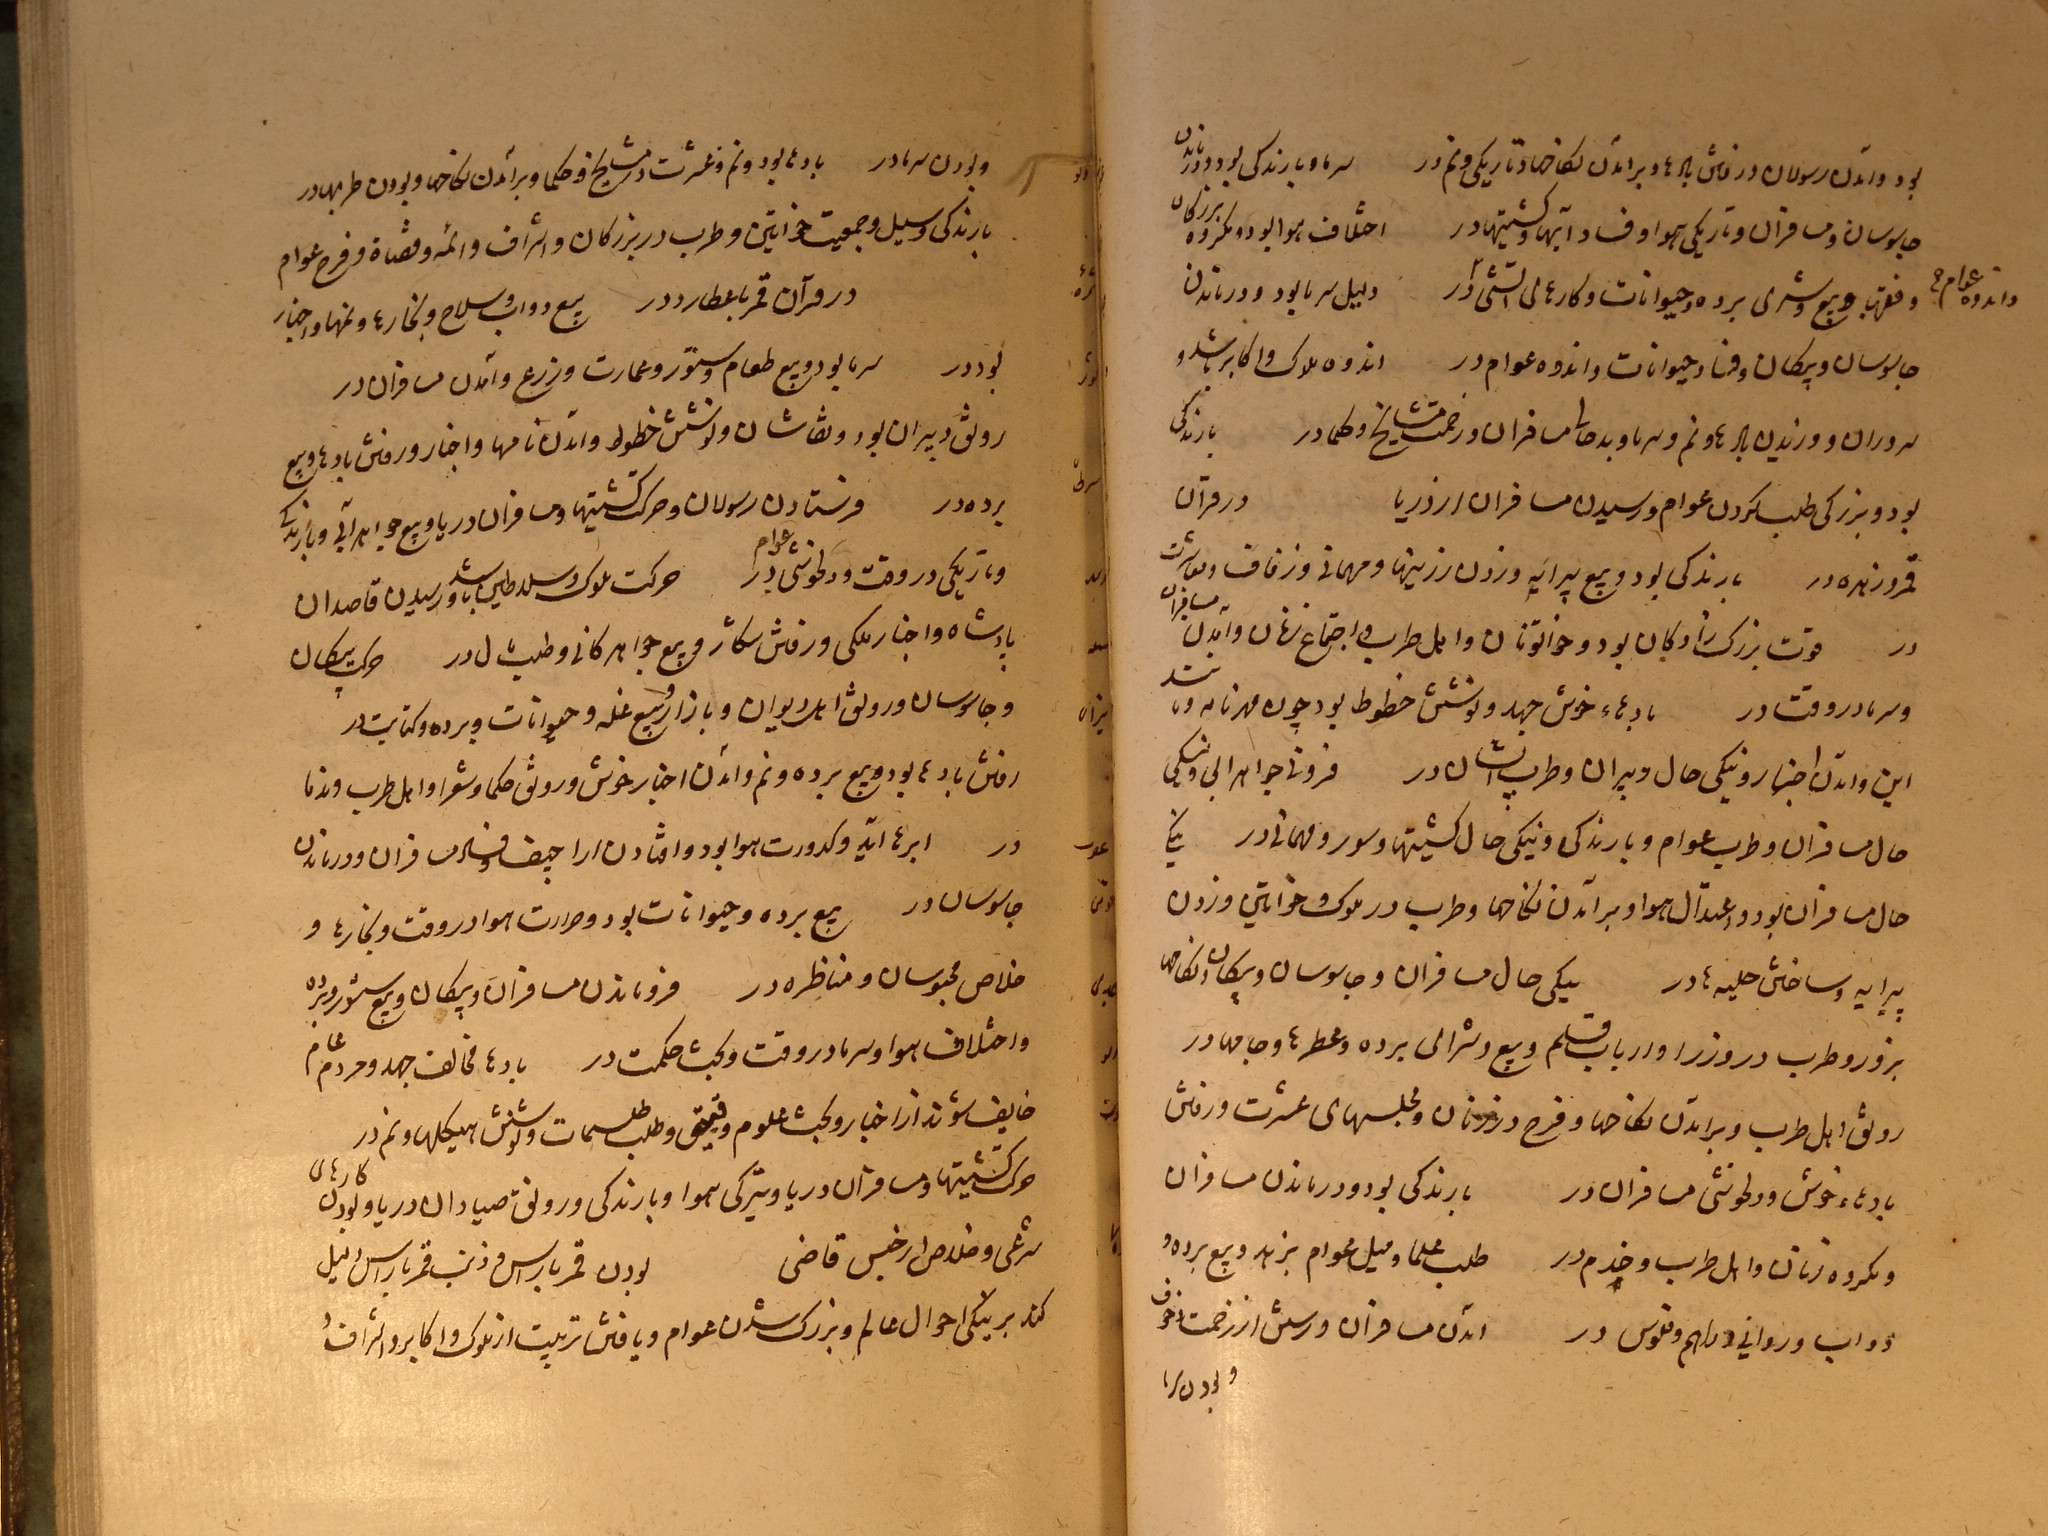 بود و آمدن رسولان و رفتن بارها و برآمدن نکاحها و تاریکی و نم در سرما و بارندگی بود و درماندن
جاسوسان و مسافران و تاریکی هوا و فساد آبها و کشتیها در اختلاف هوا بود و مکروه بزرگان
و اندوه عوام
و بیع و شری برده و حیوانات و کارهای آتشی در دلیل سرما بود و درماندن
جاسوسان و پیکان و فساد حیوانات و اندوه عوام در اندوه ملوک و اکابر باشد و
سروران و و نم و سرما و بدحالی مسافران و زحمت مشایخ و حکما در بارندگی
بود و بزرگی طلب کردن عوام و رسیدن مسافران از دریا در قرآن
قمر و زهره در بارندگی بود و بیع پیرایه و زدن زرینها و مهمانی و زفاف و معاشرت
در قوت بزرگ زادگان بود و خواتونان و اهل طرب و اجتماع زنان و آمدن مسافران
و سرما در وقت در بادهاء خوش جهد و نوشتن خطوط بود چون مهرنامه و مانند
این و آمدن اخبار و نیکی حال دبیران و طرب ایشان در فزونی جواهر آبی و نیکی
حال مسافران و طرب عوام و بارندگی و نیکی حال کشتیها و سور و مهمانی در نیکی
حال مسافران بود و اعتدال هوا و برآمدن نکاحها و طرب در ملوک و خواتین و زدن
پیرایه و ساختن حلیه ها در نیکی حال مسافران و جاسوسان و پیکان و نکاحها
بزور و طرب در وزرا و ارباب قلم و بیع و شرای برده و عطرها و جامها در
رونق اهل طرب و برآمدن نکاحها و فرح در زنان و مجلسهای عشرت و رفتن
بادهاء خوش و دلخوشی مسافران در بارندگی بود و درماندن مسافران
و مکروه زنان و اهل طرب و خدم در طلب علما و میل عوام بزهد و بیع برده و
دواب و روانی دراهم و فلوس در آمدن مسافران و رستن از زحمت و خوف
و بودن سرما
و بودن سرما در بادها بود و نم و عشرت در مشایخ و حکما و برآمدن نکاحها و بودن طربها در
بارندگی و سیل و جمعیت خواتین و طرب در بزرگان و اشراف و ائمه و قضاة و فرح عوام
در قرآن قمر با عطارد در بیع دواب و سلاح و بخارها و نمها و اخبار
بود در سرما بود و بیع طعام و ستور و عمارت و زرع و آمدن مسافران در
رونق دبیران بود و نقاشان و نوشتن خطوط و آمدن نامها و اخبار و رفتن بادها و بیع
برده در فرستادن رسولان و حرکت کشتیها و مسافران دریا و بیع جواهر آبی و بارندگی
و تاریکی در وقت و دلخوشی عوام در حرکت ملوک و سلاطین باشد و رسیدن قاصدان
پادشاه و اخبار ملکی و رفتن شکار و بیع جواهر کانی و طلب در حرکت پیکان
و جاسوسان و رونق اهل دیوان و بازار و بیع غله و حیوانات و برده و کتابت در
رفتن بادها بود و بیع برده و نم و آمدن اخبار خوش و رونق حکما و شعرا و اهل طرب و ندما
در ابرها آید و کدورت هوا بود و افتادن اراجیف و فساد مسافران و درماندن
جاسوسان در بیع برده و حیوانات بود و حرارت هوا در وقت و بخارها و
خلاص محبوسان و مناظره در فروماندن مسافران و پیکان و بیع ستور و برده
و اختلاف هوا و سرما در وقت و بحث حکمت در بادها مخالف جهد و مردم عام
خایف شوند از اخبار و بحث علوم دقیق و طلب طلسمات و نوشتن هیکلها و نم در
حرکت کشتیها و مسافران دریا و تیرگی هوا و بارندگی و رونق صیادان دریا و بودن کارهای
شرعی و خلاص از حبس قاضی بودن قمر با راس و ذنب قمر با راس دلیل
کند بر نیکی احوال عالم و بزرگ شدن عوام و یافتن تربیت از ملوک و اکابر و اشراف و